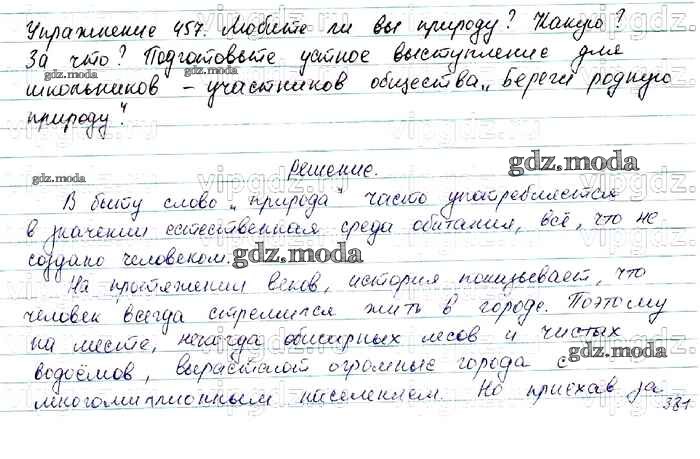 Упражнение 457. Любите ли вы природу? Какую?
За что? Подготовьте устное выступление для
gdz.moda
школьников – участников общества „Береги родную
gdz.moda
природу".
Решение.
gdz.moda
gdz.moda
В быту слово „природа" часто употребляется
в значении естественная среда обитания, всё, что не
создано человеком.
gdz.moda
На протяжении веков, история показывает, что
человек всегда стремился жить в городе. Поэтому
на месте, некогда обширных лесов и чистых
gdz.moda
водоёмов, вырастают огромные города с
многомиллионным населением. Но приехав за
381